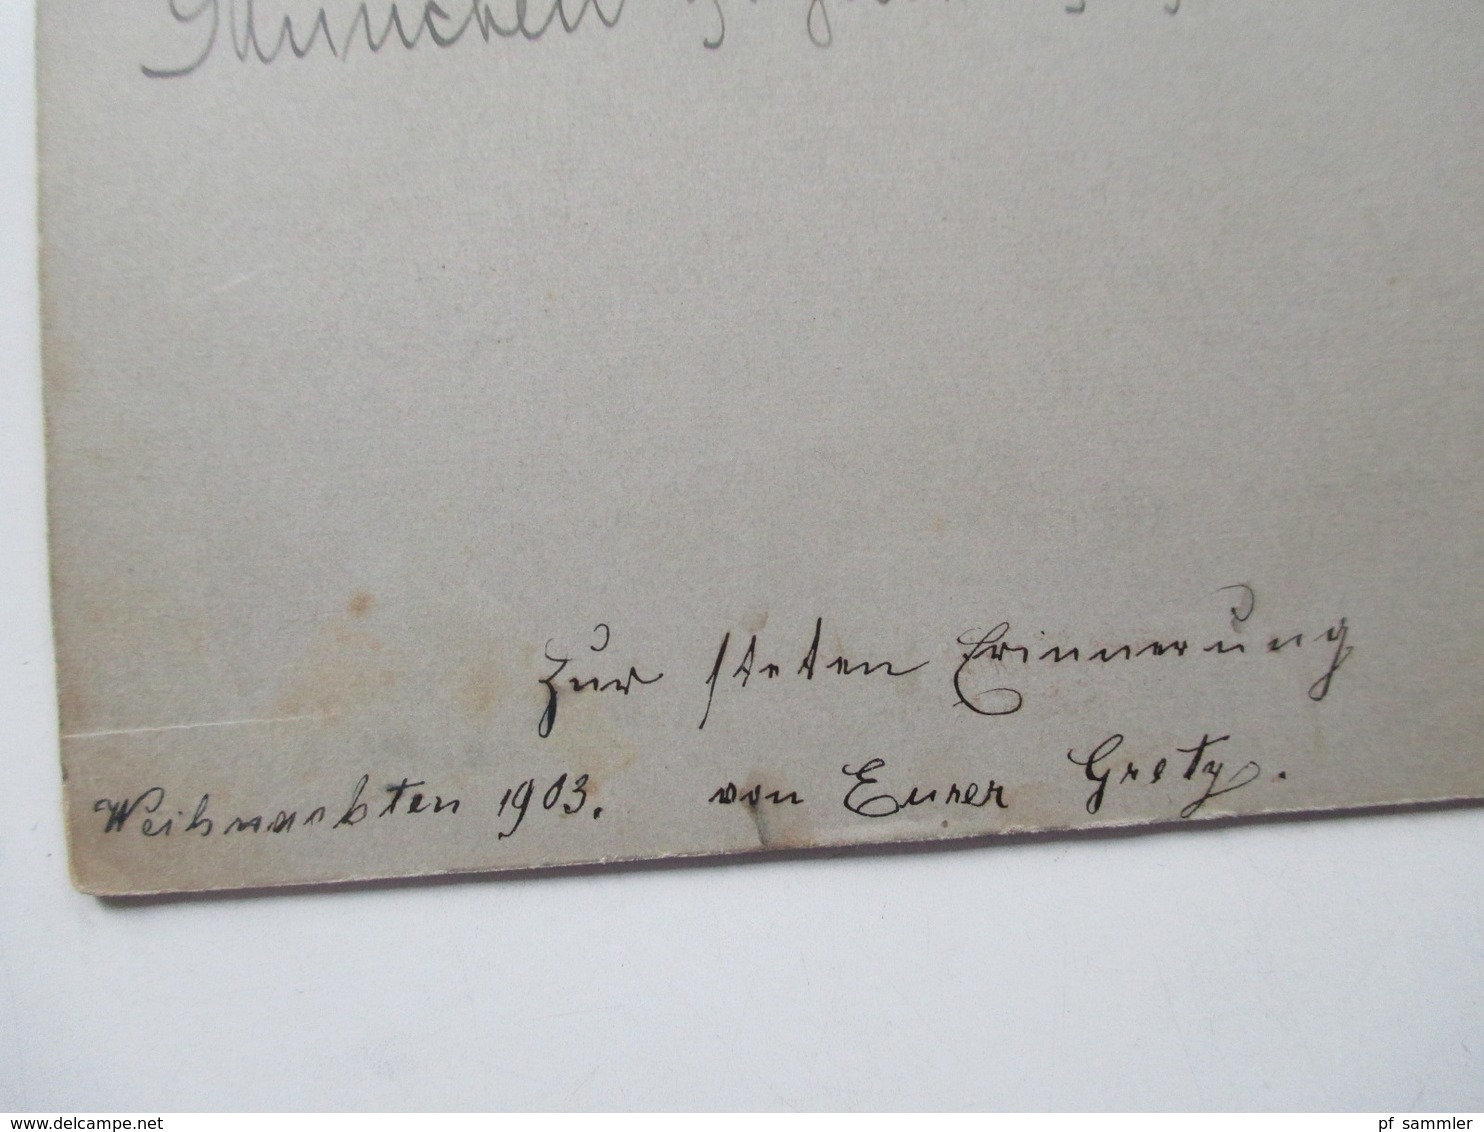 München
Zur steten Erinnerung
Weihnachten 1903. von Eurer Grety.
www.delcampe.net
pf_sammler